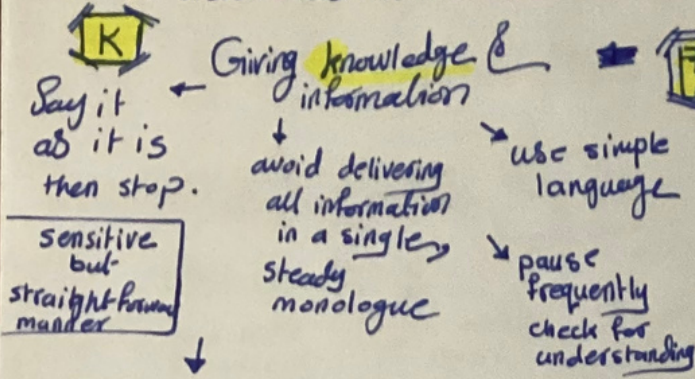 K
Giving knowledge &
information
Say it
as it is
then stop.
sensitive
but
straightforward
manner
avoid delivering
all information
in a single,
steady
monologue
use simple
language
pause
frequently
check for
understanding